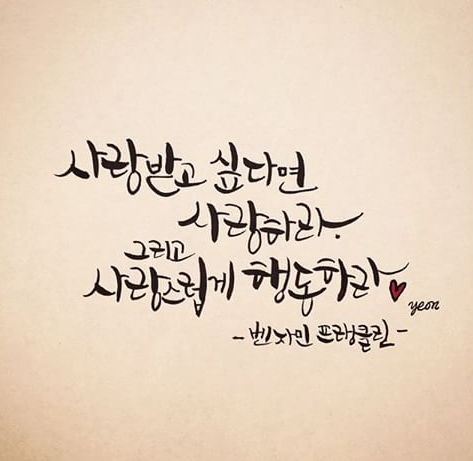 사랑받고 싶다면
사랑하라.
그리고
사랑스럽게 행동하라
yeon
-벤자민 프랭클린-